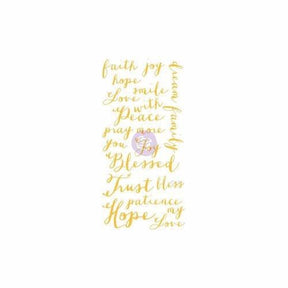 faith joy
hope
smile
Love
with
Peace
pray more
you Joy
Blessed
Trust bless
patience
Hope my
Love
dream family